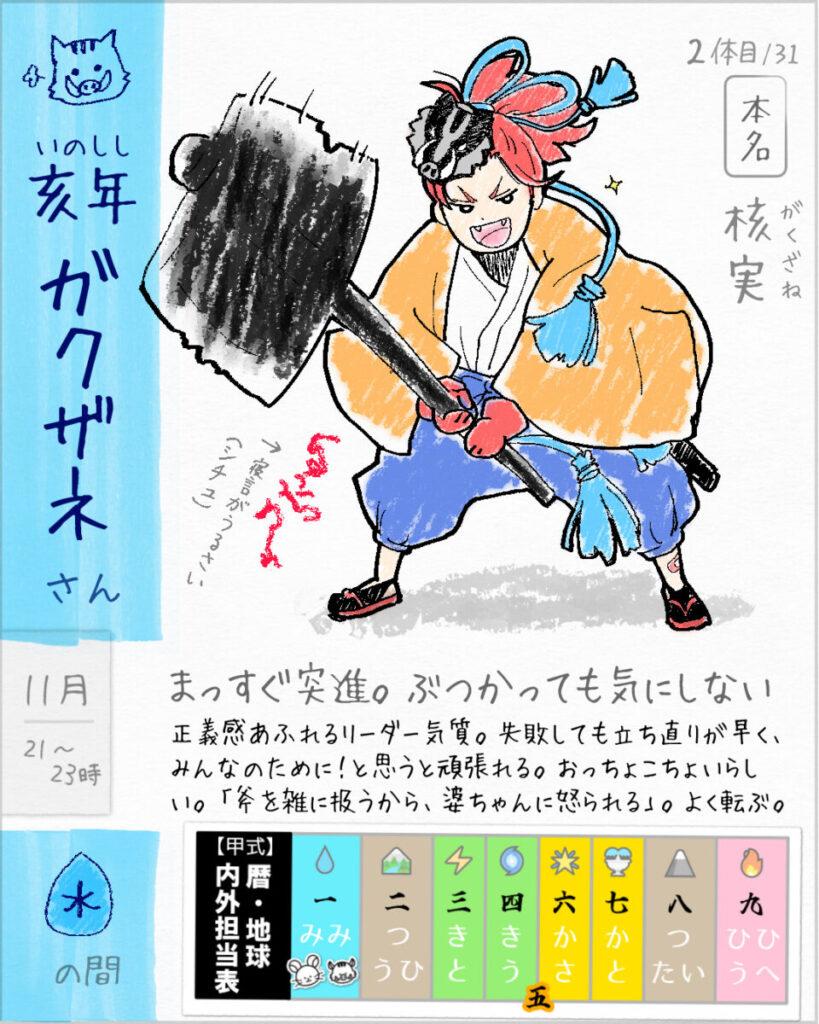 2体目/31
本名
核実
がくざね
いのしし
亥年
ガクザネ
さん
→寝言がうるさい
(シチュ)
11月
21〜
23時
まっすぐ突進。ぶつかっても気にしない
正義感あふれるリーダー気質。失敗しても立ち直りが早く、
みんなのために!と思うと頑張れる。おっちょこちょいらし
い。「斧を雑に扱うから、婆ちゃんに怒られる」。よく転ぶ。
水
の間
【甲式】
暦・地球
内外担当表
一
みみ
二
つ
うひ
三
きと
四
きう
五
六
かさ
七
かと
八
つ
たい
九
ひひ
うへ